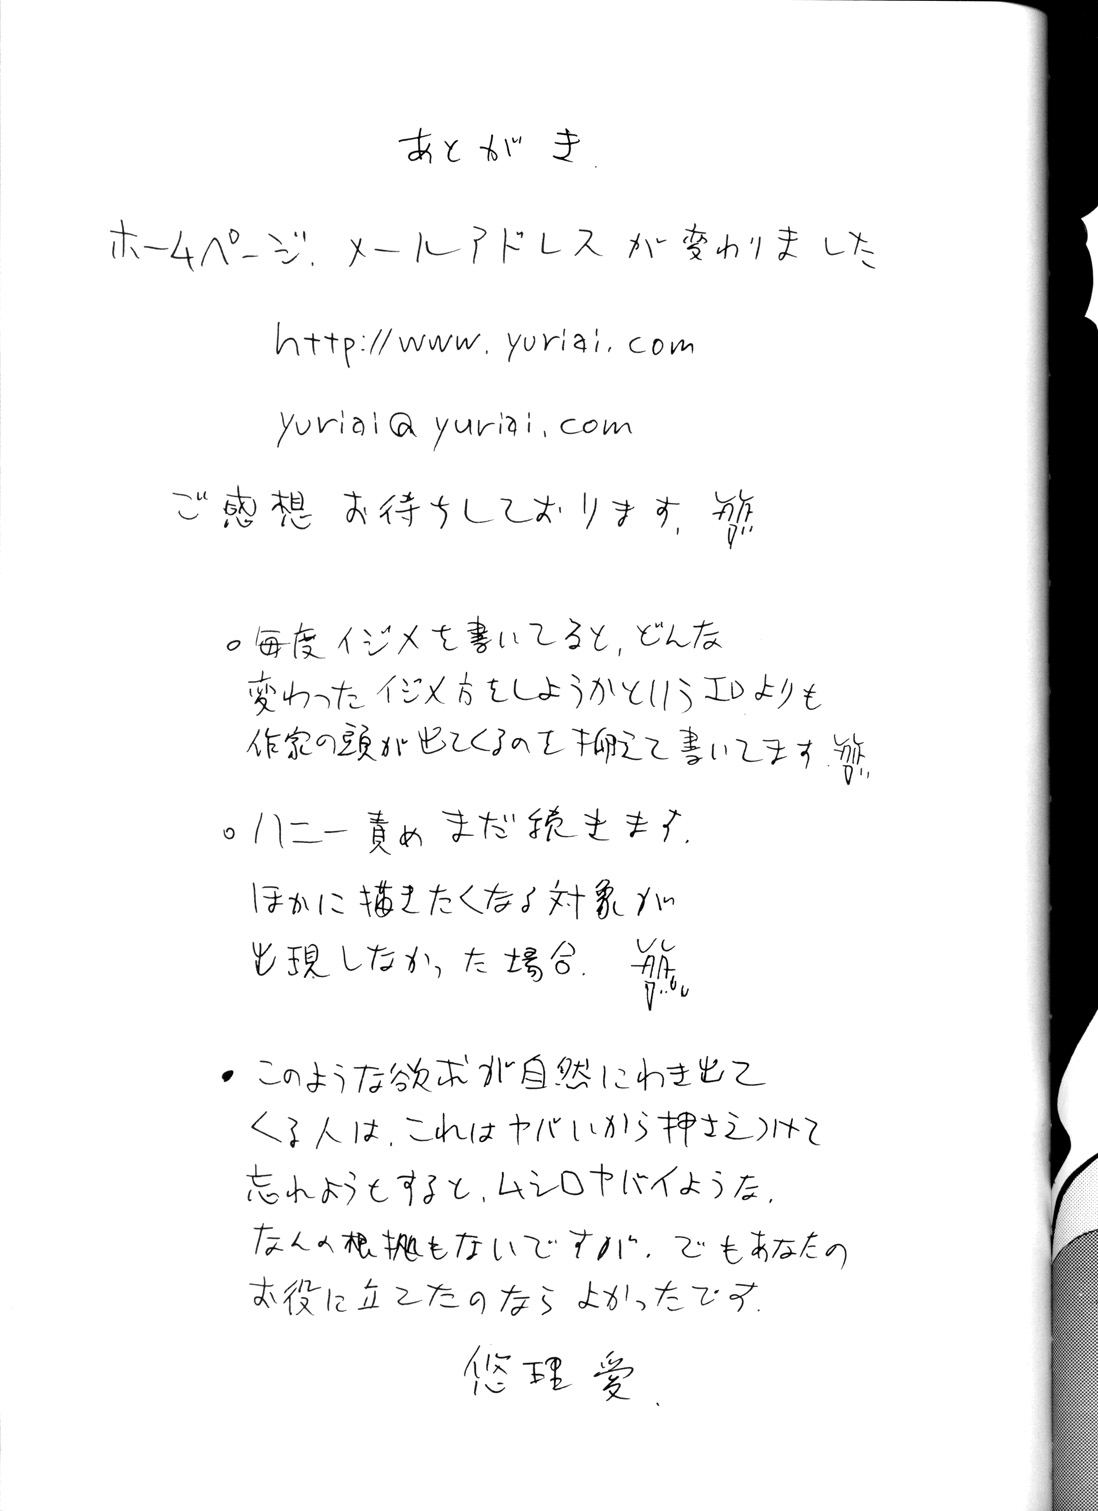 あとがき.
ホームページ.メールアドレスが変わりました
http://www.yuriai.com
yuriai@yuriai.com
ご感想 お待ちしております.
○ 毎度イジメを書いてると,どんな
変わったイジメ方をしようかというエロよりも
作家の頭が出てくるのを抑えて書いてます.
○ ハニー責め まだ続きます.
ほかに描きたくなる対象が
出現しなかった場合.
• このような欲求が自然にわき出て
くる人は,これはヤバいから押さえつけて
忘れようとすると,ムシロヤバイような.
なんの根拠もないですが.でもあなたの
お役に立てたのなら よかったです.
悠理愛.